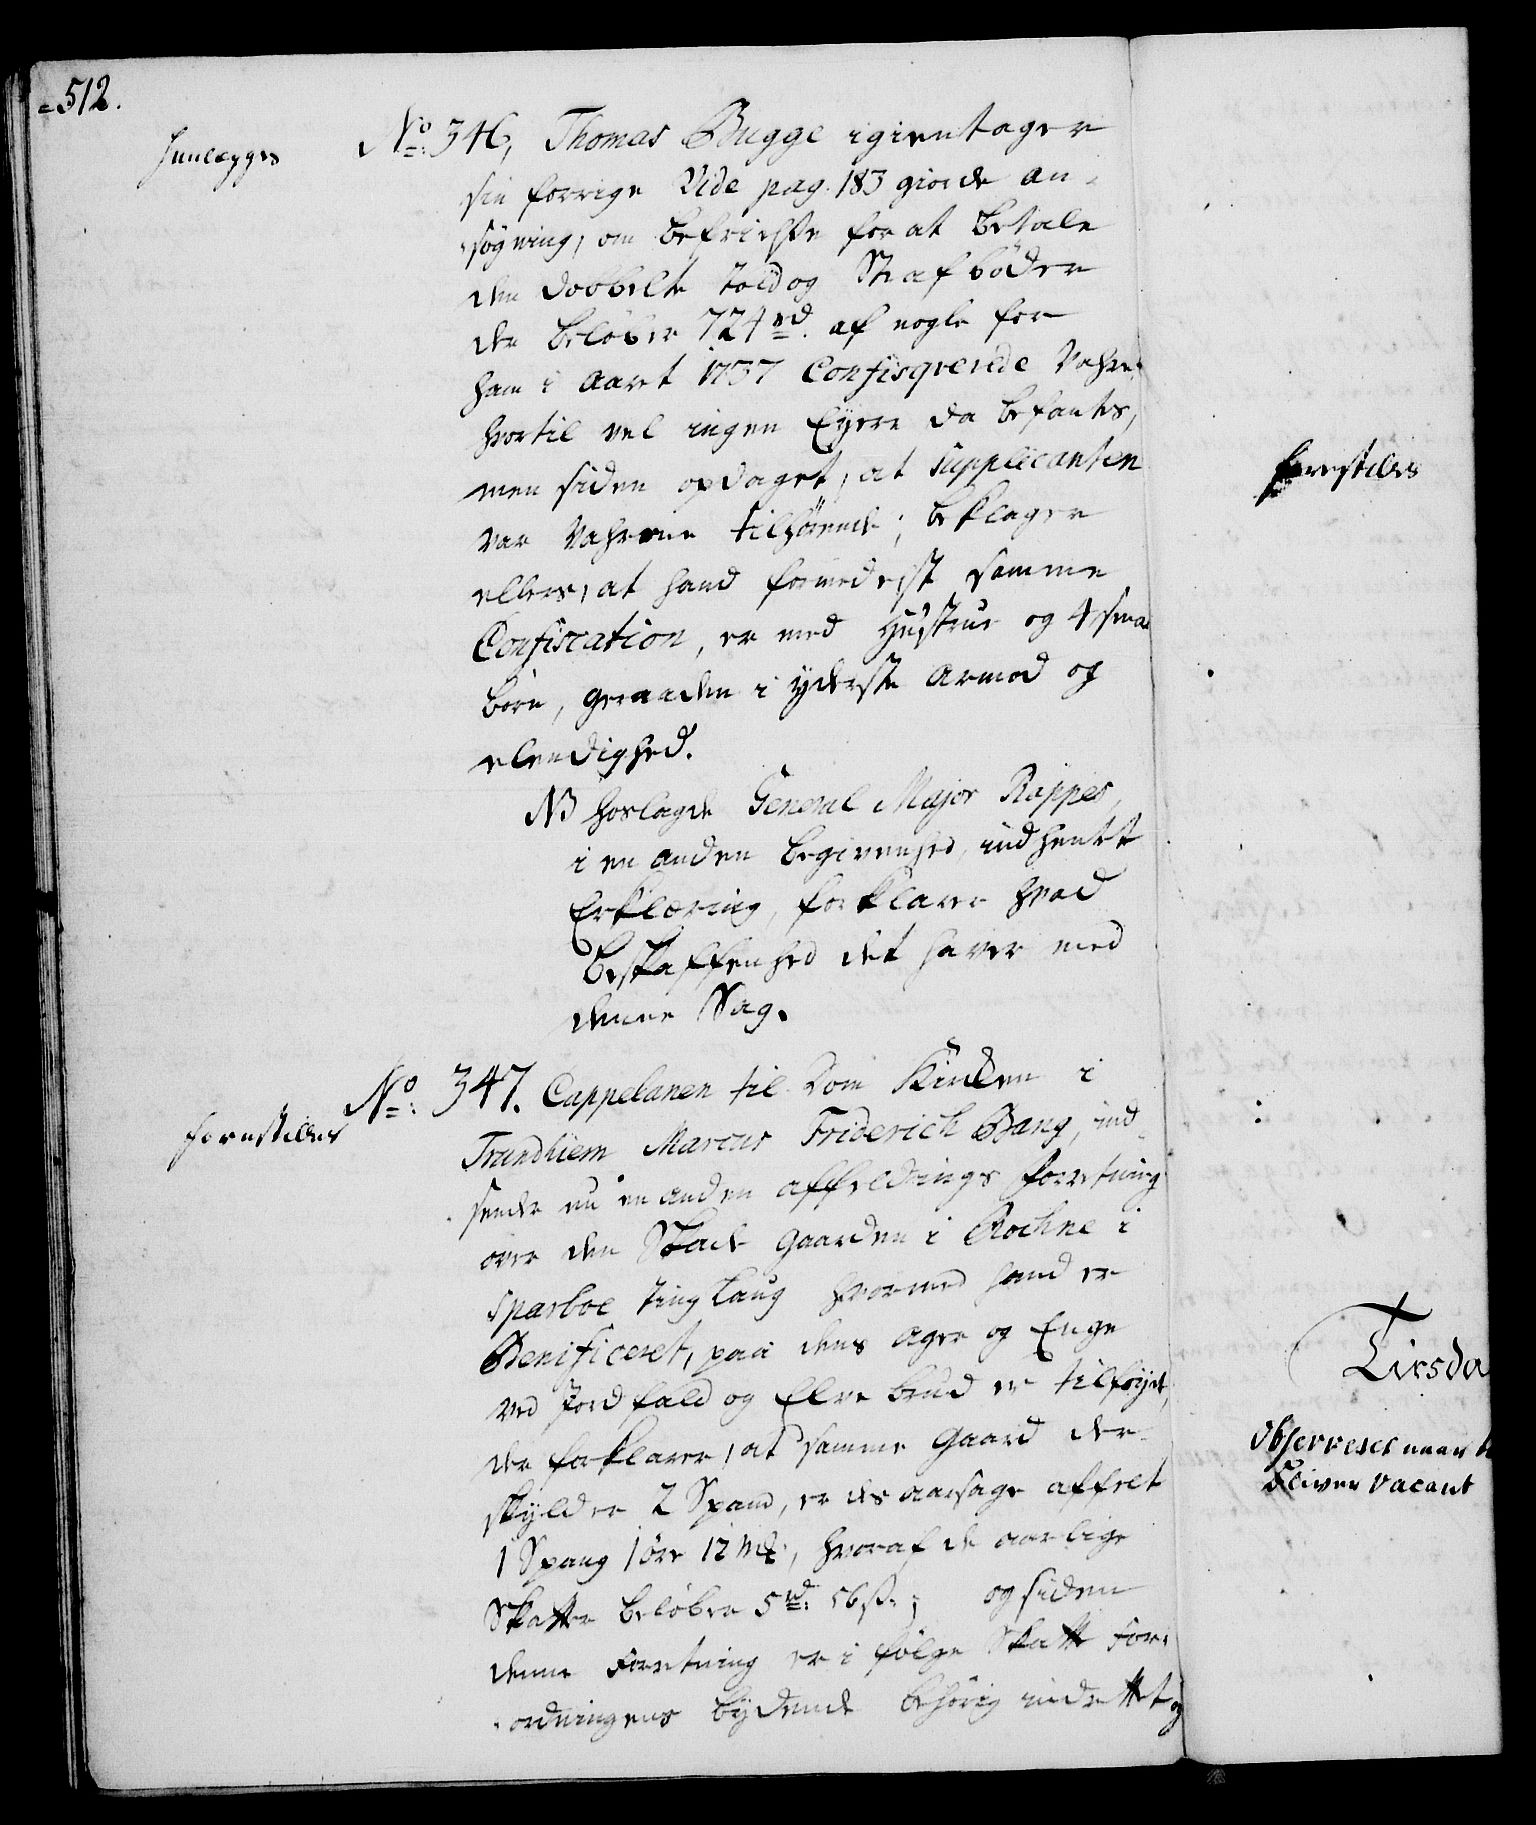 512.
Henlegges
No: 346, Thomas Bugge igientager
sin forrige Vide pag. 183 giorde an-
søgning, om befrielse for at betale
den dobbelte Told og Strafbøder
der beløber 724 rd. af nogle for
ham i Aaret 1737 Confisqverede Vahre,
hvortil vel ingen Eyere da befantes,
men siden opdaget, at Supplicanten
var Vahrerne tilhørende; beklager
ellers, at hand formedelst samme
Confiscation, er med Hustrue og 4 smaa
børn, geraaden i yderste Armod og
elendighed.
NB hoslagde General Major Rappes,
i en anden begivenhed, indhentet
Erklæring, forklarer hvad
Beskaffenhed det haver med
denne Sag.
forestilles
No: 347. Cappelanen til Dom Kirken i
Trundhiem Marcus Friderich Bang, ind-
sender nu en anden affældings forretning
over den Skade Gaarden i Rochne i
Sparboe Tinglaug hvormed hand er
Benificeret, paa dens ager og Enge
ved Jordfald og Elve brud er tilføyet,
der forklarer, at samme Gaard der
skylder 2 Spand, er des aarsage affelt
1 Spang 1 øre 12 mk, hvoraf de aarlige
Skatter beløber 5 rd: 56 s; og siden
denne Forretning er i følge Skatte For-
ordningens bydende behørig indrettet og
forestilles
Tirsda
Observeres naar
bliver vacant